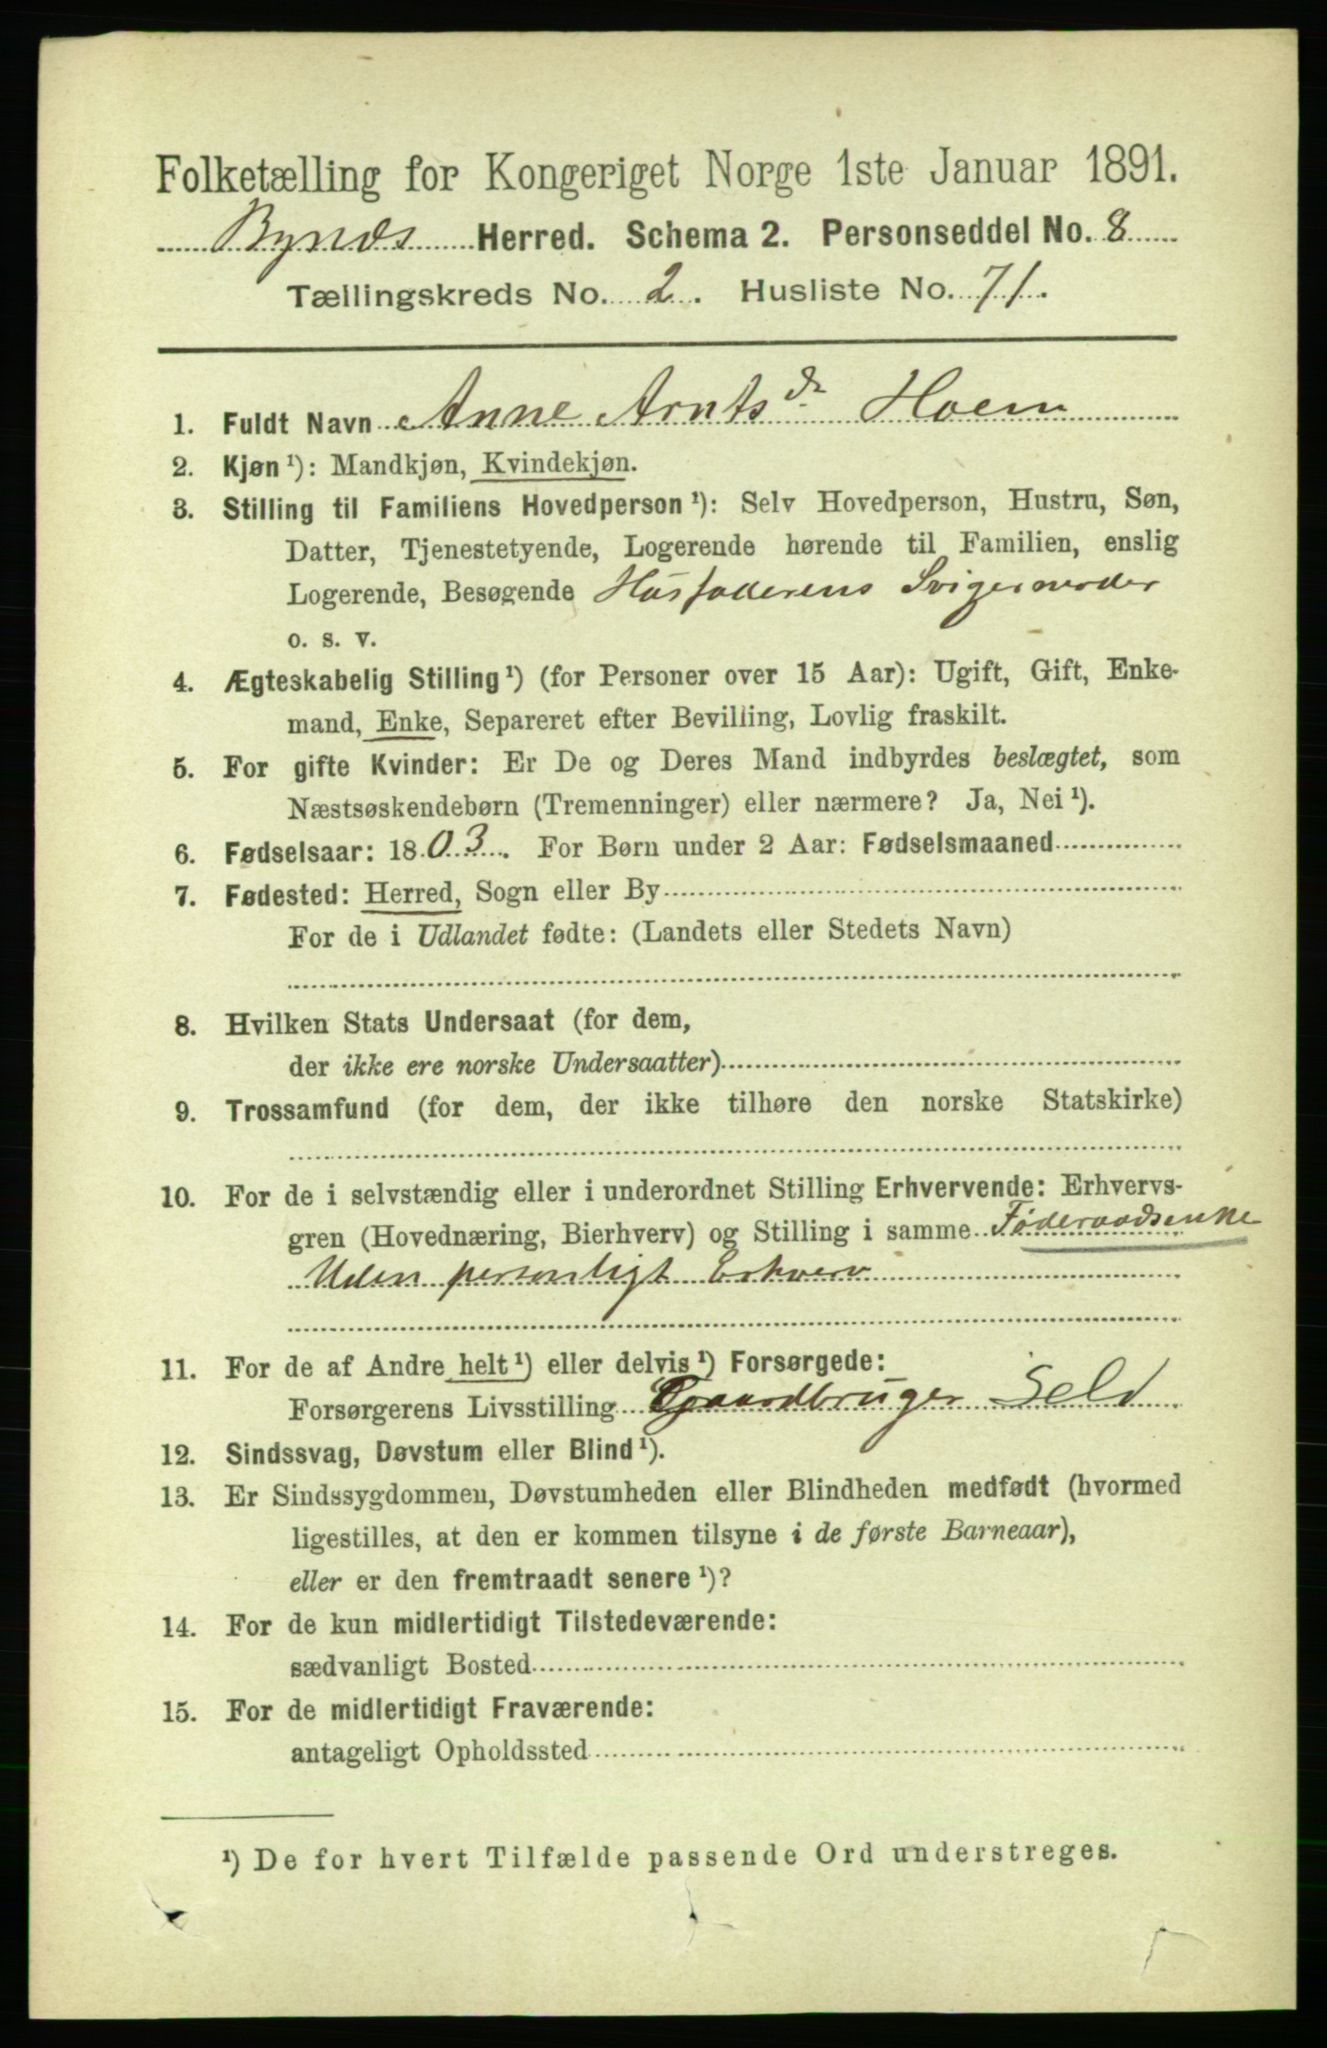 Folketælling for Kongeriget Norge 1ste Januar 1891.
Bynæs Herred. Schema 2. Personseddel No. 8
Tællingskreds No. 2. Husliste No. 71.
1. Fuldt Navn Anne Arntsdr Hoem
2. Kjøn¹): Mandkjøn, Kvindekjøn.
3. Stilling til Familiens Hovedperson¹): Selv Hovedperson, Hustru, Søn,
Datter, Tjenestetyende, Logerende hørende til Familien, enslig
Logerende, Besøgende Husfaderens Svigermoder
o. s. v.
4. Ægteskabelig Stilling¹) (for Personer over 15 Aar): Ugift, Gift, Enke-
mand, Enke, Separeret efter Bevilling, Lovlig fraskilt.
5. For gifte Kvinder: Er De og Deres Mand indbyrdes beslægtet, som
Næstsøskendebørn (Tremenninger) eller nærmere? Ja, Nei¹).
6. Fødselsaar: 1803. For Børn under 2 Aar: Fødselsmaaned
7. Fødested: Herred, Sogn eller By
For de i Udlandet fødte: (Landets eller Stedets Navn)
8. Hvilken Stats Undersaat (for dem,
der ikke ere norske Undersaatter)
9. Trossamfund (for dem, der ikke tilhøre den norske Statskirke)
10. For de i selvstændig eller i underordnet Stilling Erhvervende: Erhvervs-
gren (Hovednæring, Bierhverv) og Stilling i samme Føderaadsenke
Uden personligt Erhverv
11. For de af Andre helt¹) eller delvis¹) Forsørgede:
Forsørgerens Livsstilling Gaardbruger Selv
12. Sindssvag, Døvstum eller Blind¹).
13. Er Sindssygdommen, Døvstumheden eller Blindheden medfødt (hvormed
ligestilles, at den er kommen tilsyne i de første Barneaar),
eller er den fremtraadt senere¹)?
14. For de kun midlertidigt Tilstedeværende:
sædvanligt Bosted
15. For de midlertidigt Fraværende:
antageligt Opholdssted
¹) De for hvert Tilfælde passende Ord understreges.